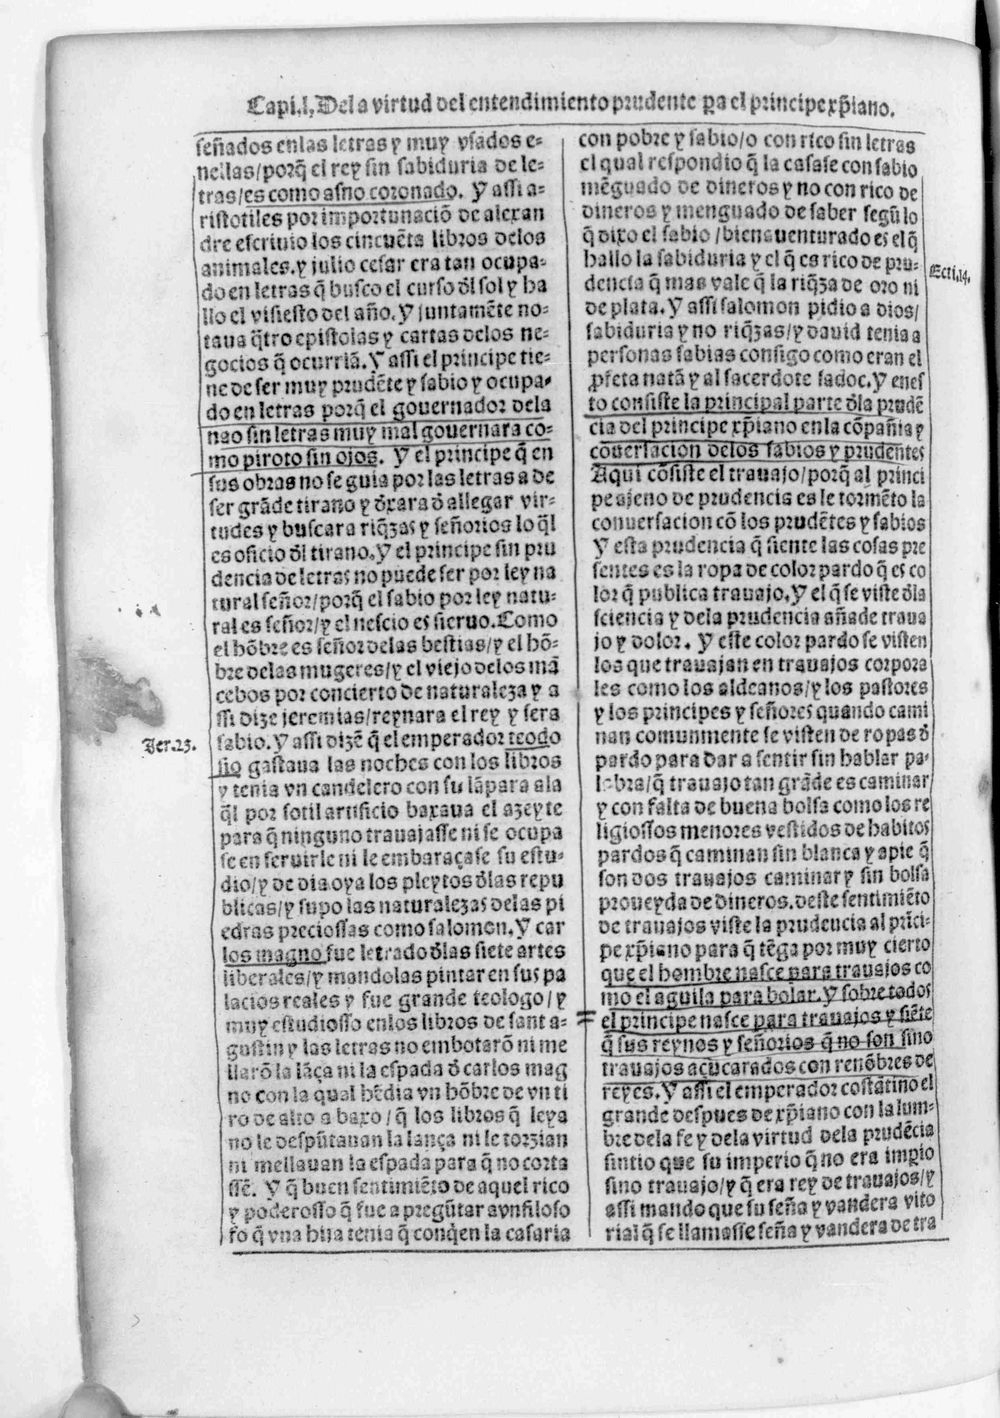 Capi.l, De la virtud del entendimiento prudente pa el principe xp̃iano.
señados enlas letras y muy vsados e-
nellas/porq̃ el rey sin sabiduria de le-
tras/es como asno coronado. Y assi a-
ristotiles por importunaciõ de alexan
dre escriuio los cincuẽta libros delos
animales.y julio cesar era tan ocupa-
do en letras q̃ busco el curso ðl sol y ha
llo el visiesto del año. Y juntamẽte no-
taua q̃tro epistolas y cartas delos ne-
gocios q̃ ocurriã. Y assi el principe tie-
ne de ser muy prudẽte y sabio y ocupa-
do en letras porq̃ el gouernador dela
nao sin letras muy mal gouernara co-
mo piroto sin ojos. Y el principe q̃ en
sus obras no se guia por las letras a de
ser grãde tirano y ðxara ð allegar vir-
tudes y buscara riq̃zas y señorios lo q̃l
es oficio ðl tirano. Y el principe sin pru
dencia de letras no puede ser por ley na
tural señor/porq̃ el sabio por ley natu-
ral es señor/y el nescio es sieruo. Como
el hõbre es señor delas bestias/y el hõ-
bre delas mugeres/y el viejo delos mã
cebos por concierto de naturaleza y a
ssi dize jeremias/reynara el rey y sera
sabio. Y assi dizẽ q̃ el emperador teodo
Jer.23.
sio gastaua las noches con los libros
y tenia vn candelero con su lãpara ala
q̃l por sotil artificio baxaua el azeyte
para q̃ ninguno trauajasse ni se ocupa
se en seruirle ni le embaraçase su estu-
dio/y de dia oya los pleytos ðlas repu
blicas/y supo las naturalezas delas pi
edras preciossas como salomon. Y car
los magno fue letrado ðlas siete artes
liberales/y mandolas pintar en sus pa
lacios reales y fue grande teologo/y
muy estudiosso enlos libros de sant a-
gustin y las letras no embotarõ ni me
llarõ la lãça ni la espada ð carlos mag
no con la qual hẽdia vn hõbre de vn ti
ro de alto a baxo/q̃ los libros q̃ leya
no le despũtauan la lança ni le torzian
ni mellauan la espada para q̃ no corta
ssẽ. Y q̃ buen sentimiẽto de aquel rico
y poderosso q̃ fue a pregũtar avn filoso
fo q̃ vna hija tenia q̃ conq̃en la casaria
con pobre y sabio/o con rico sin letras
el qual respondio q̃ la casase con sabio
mẽguado de dineros y no con rico de
dineros y menguado de saber segũ lo
q̃ dixo el sabio/bienauenturado es el q̃
hallo la sabiduria y el q̃ es rico de pru-
Ecti.14.
dencia q̃ mas vale q̃ la riq̃za de oro ni
de plata. Y assi salomon pidio a dios/
sabiduria y no riq̃zas/y dauid tenia a
personas sabias consigo como eran el
pfeta natã y al sacerdote sadoc. Y enes
to consiste la principal parte ðla prudẽ
cia del principe xp̃iano enla cõpañia y
cõuersacion delos sabios y prudentes
Aqui cõsiste el trauajo/porq̃ al princi
pe ajeno de prudencia es le tormẽto la
conuersacion cõ los prudẽtes y sabios
Y esta prudencia q̃ siente las cosas pre
sentes es la ropa de color pardo q̃ es co
lor q̃ publica trauajo. Y el q̃ se viste ðla
sciencia y dela prudencia añade traua
jo y dolor. Y este color pardo se visten
los que trauajan en trauajos corpora
les como los aldeanos/y los pastores
y los principes y señores quando cami
nan comunmente se visten de ropas ð
pardo para dar a sentir sin hablar pa-
labra/q̃ trauajo tan grãde es caminar
y con falta de buena bolsa como los re
ligiossos menores vestidos de habitos
pardos q̃ caminan sin blanca y apie q̃
son dos trauajos caminar y sin bolsa
proueyda de dineros. deste sentimiẽto
de trauajos viste la prudencia al prĩci-
pe xp̃iano para q̃ tẽga por muy cierto
que el hombre nasce para trauajos co
mo el aguila para bolar. Y sobre todos
el principe nasce para trauajos y siẽte
q̃ sus reynos y señorios q̃ no son sino
trauajos açucarados con renõbres de
reyes. Y assi el emperador costãtino el
grande despues de xp̃iano con la lum-
bre dela fe y dela virtud dela prudẽcia
sintio que su imperio q̃ no era impio
sino trauajo/y q̃ era rey de trauajos/y
assi mando que su seña y vandera vito
rial q̃ se llamasse seña y vandera de tra